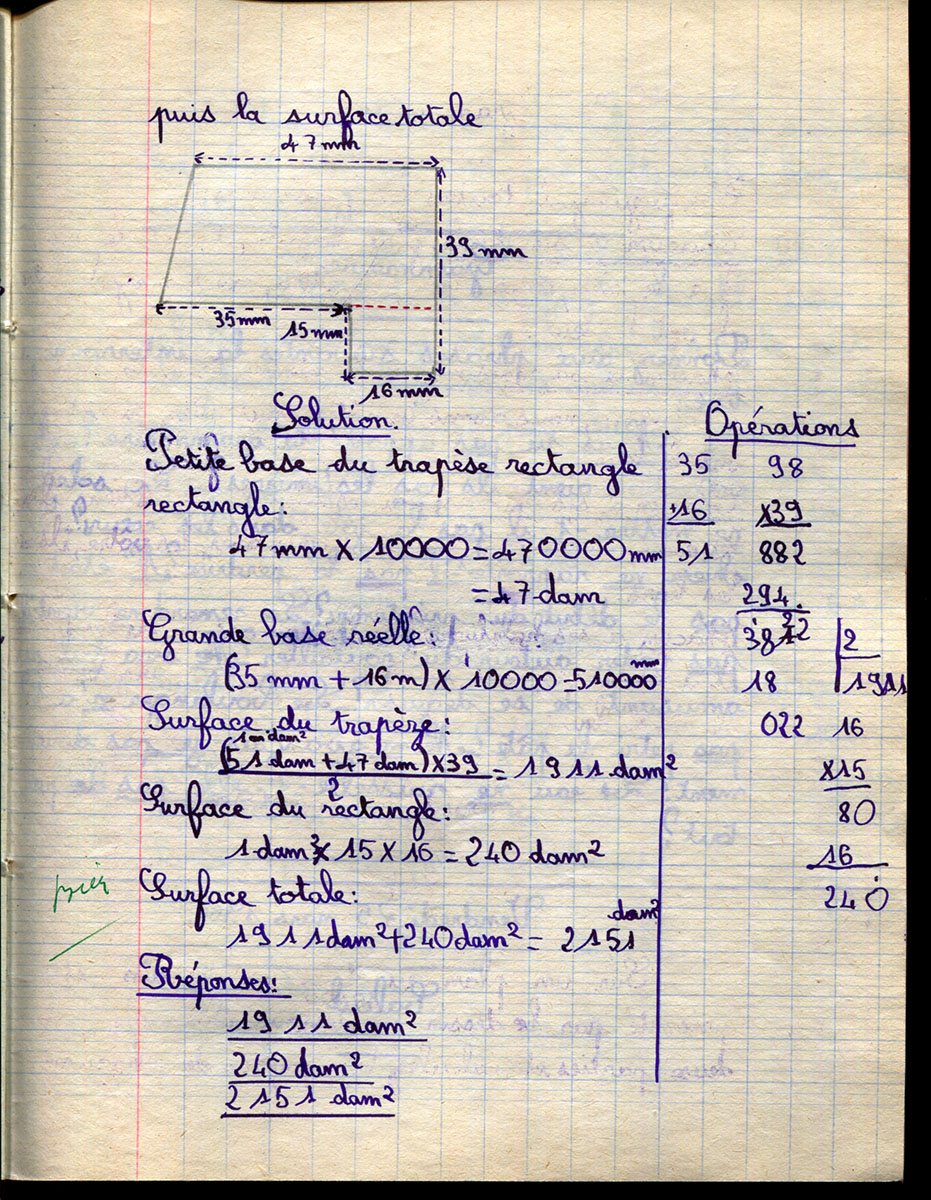 puis la surface totale
47 mm
39 mm
35 mm
15 mm
16 mm
Solution.
Petite base du trapèse rectangle
rectangle:
47 mm X 10000 = 470000 mm
= 47 dam
Grande base réelle:
(35 mm + 16 m) X 10000 = 510000 mm
Surface du trapèze:
1 dam²
(51 dam + 47 dam) X 39 = 1911 dam²
2
Surface du rectangle:
1 dam² X 15 X 16 = 240 dam²
Surface totale:
1911 dam² + 240 dam² = 2151 dam²
Réponses:
1911 dam²
240 dam²
2151 dam²
Opérations
35
+16
51
98
X39
882
294.
3822
2
18
1911
022
16
X15
80
16
240